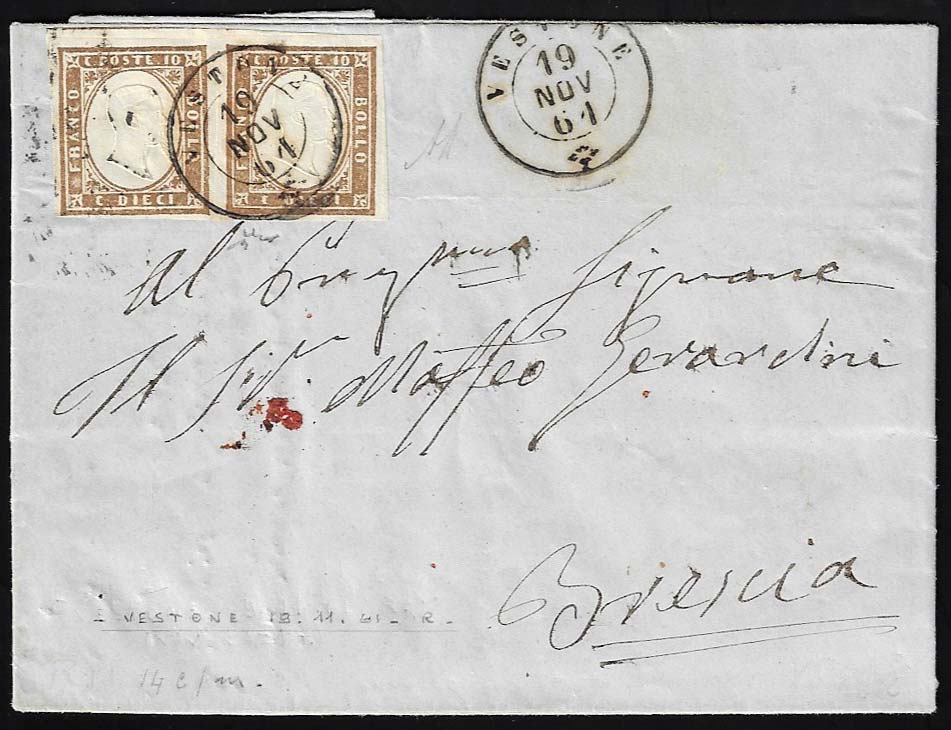 C. POSTE 10
FRANCO
BOLLO
C. DIECI
C. POSTE 10
FRANCO
BOLLO
C. DIECI
VESTONE
19
NOV
61
VESTONE
19
NOV
61
Al
Signore
Il Sigr. Maffeo Gerardini
Brescia
- VESTONE 19. 11. 61 - R. -
14 c/m.